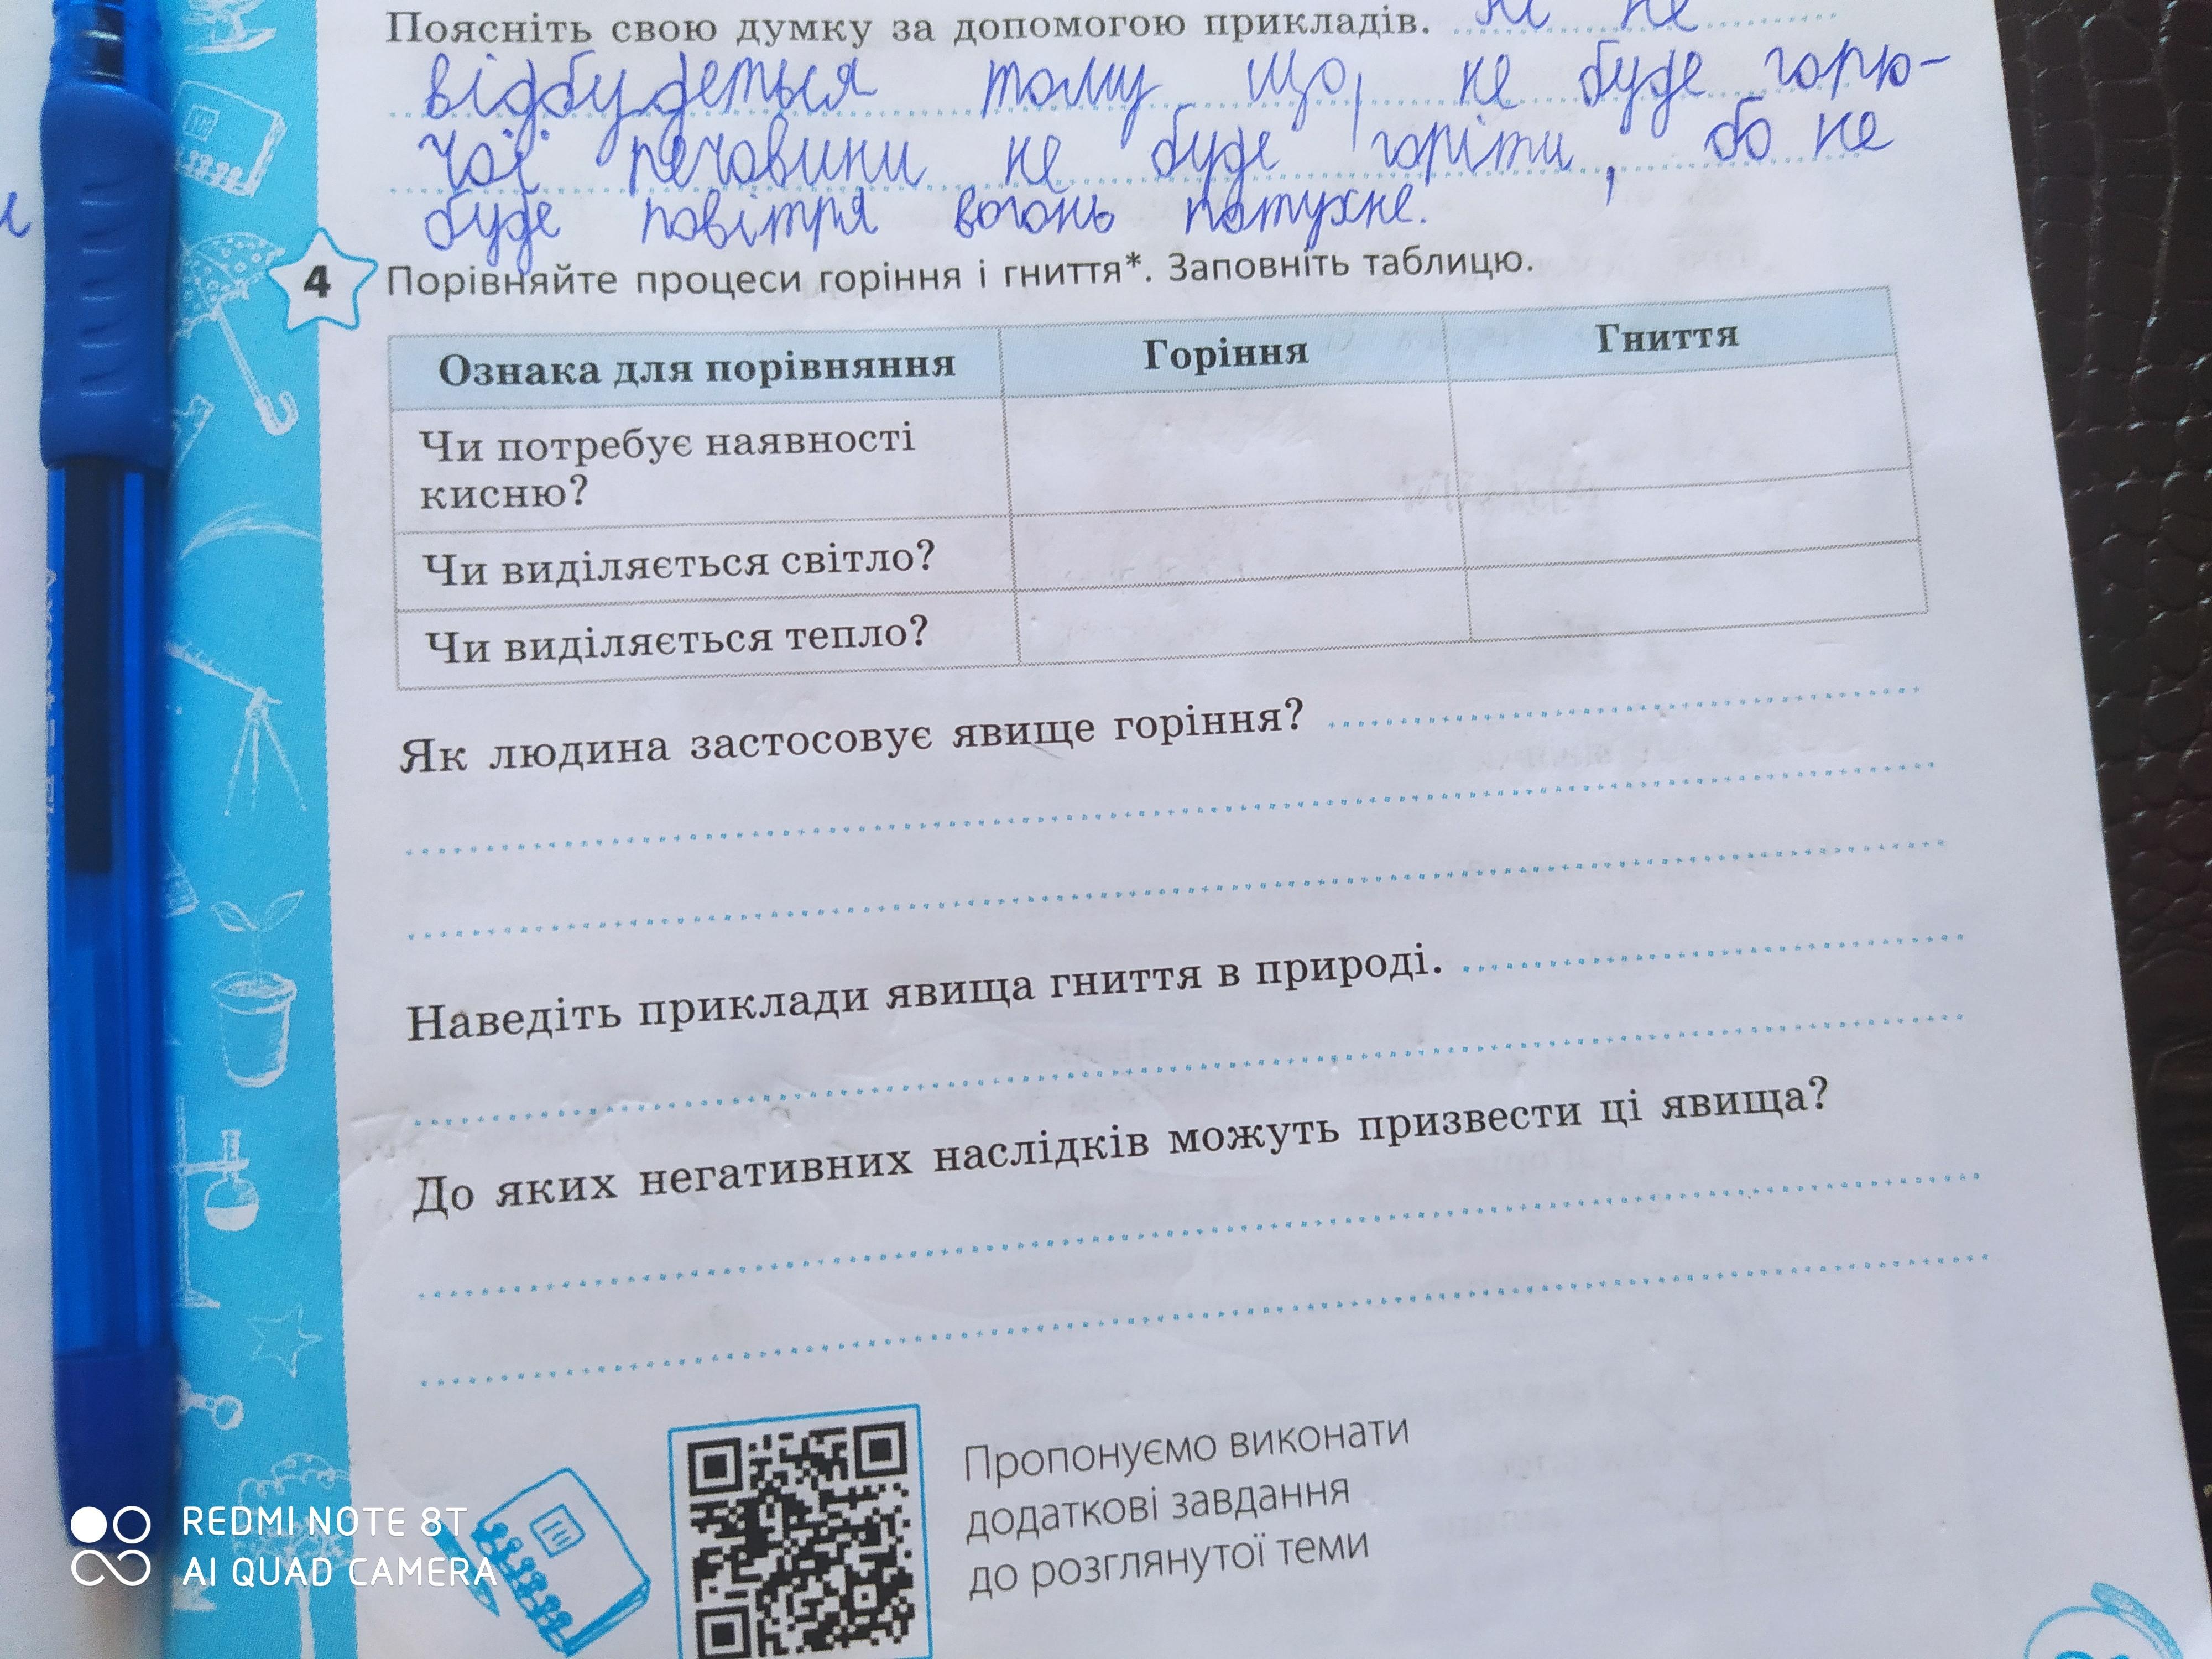 Поясніть свою думку за допомогою прикладів. не
відбудеться тому що, не буде горю-
чої речовини не буде горіти, бо не
буде повітря вогонь потухне.
4 Порівняйте процеси горіння і гниття*. Заповніть таблицю.
Ознака для порівняння Горіння Гниття
Чи потребує наявності
кисню?
Чи виділяється світло?
Чи виділяється тепло?
Як людина застосовує явище горіння?
Наведіть приклади явища гниття в природі.
До яких негативних наслідків можуть призвести ці явища?
Пропонуємо виконати
додаткові завдання
до розглянутої теми
REDMI NOTE 8T
AI QUAD CAMERA